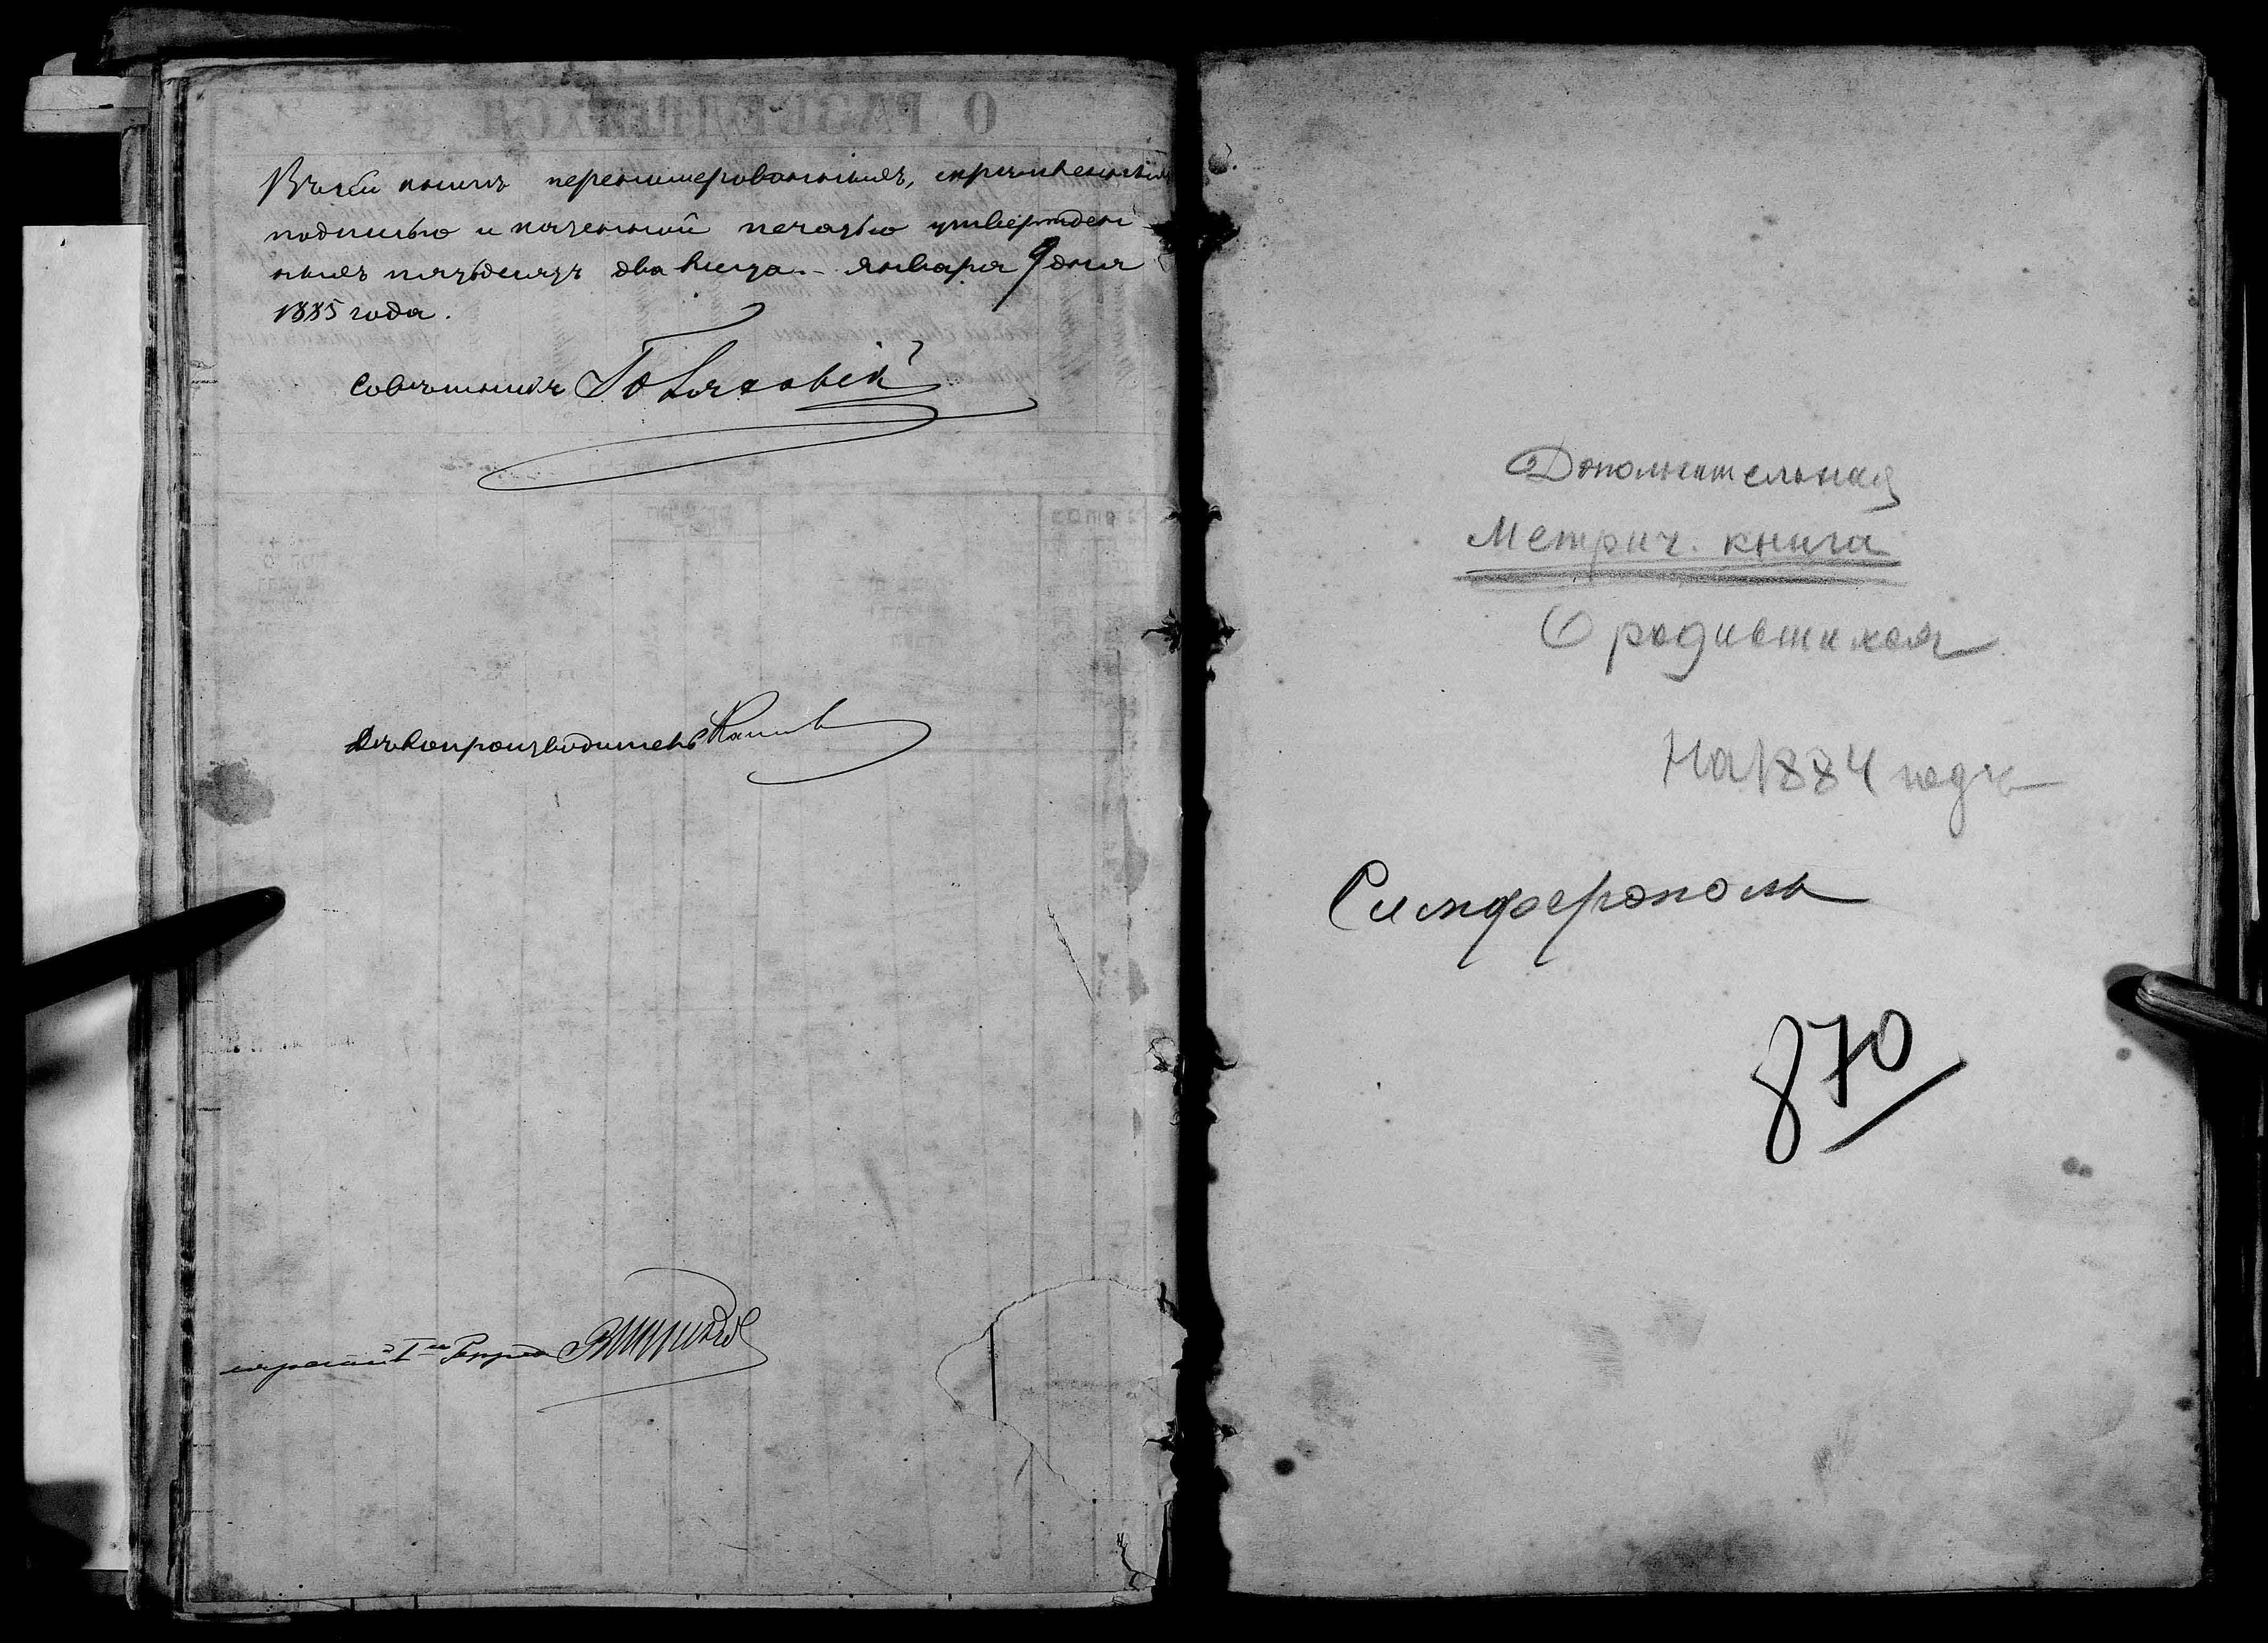 Въ сей книгѣ перенумерованныхъ, скрѣпленныхъ
подписью и казенной печатью утвержден
ныхъ пятьдесятъ два листа. Января 9 дня
1885 года.
Совѣтникъ
Дѣлопроизводитель
Дополнительная
Метрич. книга
О родившихся
На 1884 годъ
Симферополь
870